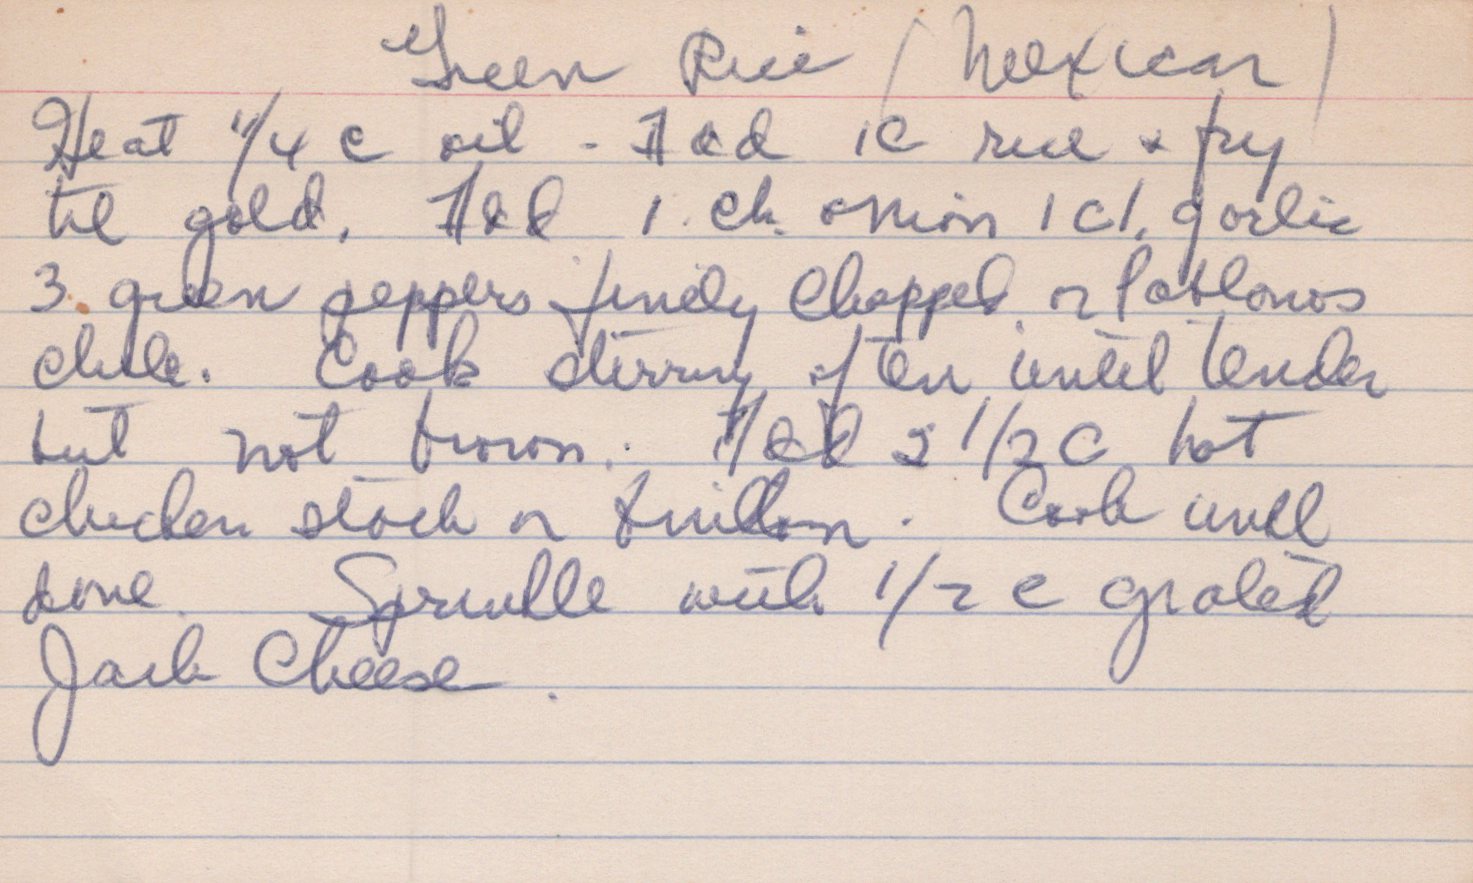 Green Rice (Mexican)
Heat 1/4 c oil - Add 1c rice & fry
til gold. Add 1 ch. onion 1 cl. garlic
3 green peppers finely chopped or Pablonos
chile. Cook stirring often until tender
but not brown. Add 2 1/2 C hot
chicken stock or buillon. Cook until
done. Sprinkle with 1/2 c grated
Jack Cheese.